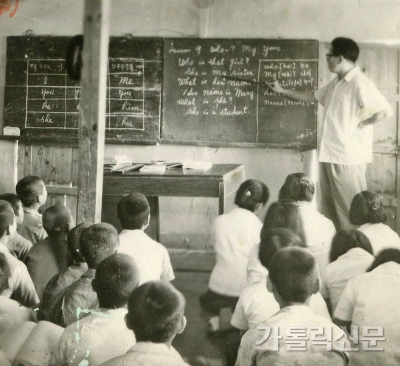 I Me
You You
he him
she her
Lesson 9 who-? My You
Who is that girl?
She is my sister
What is her name?
Her name is Mary
What is she?
She is a student
who[hu:]
My[mai]
가톨릭신문